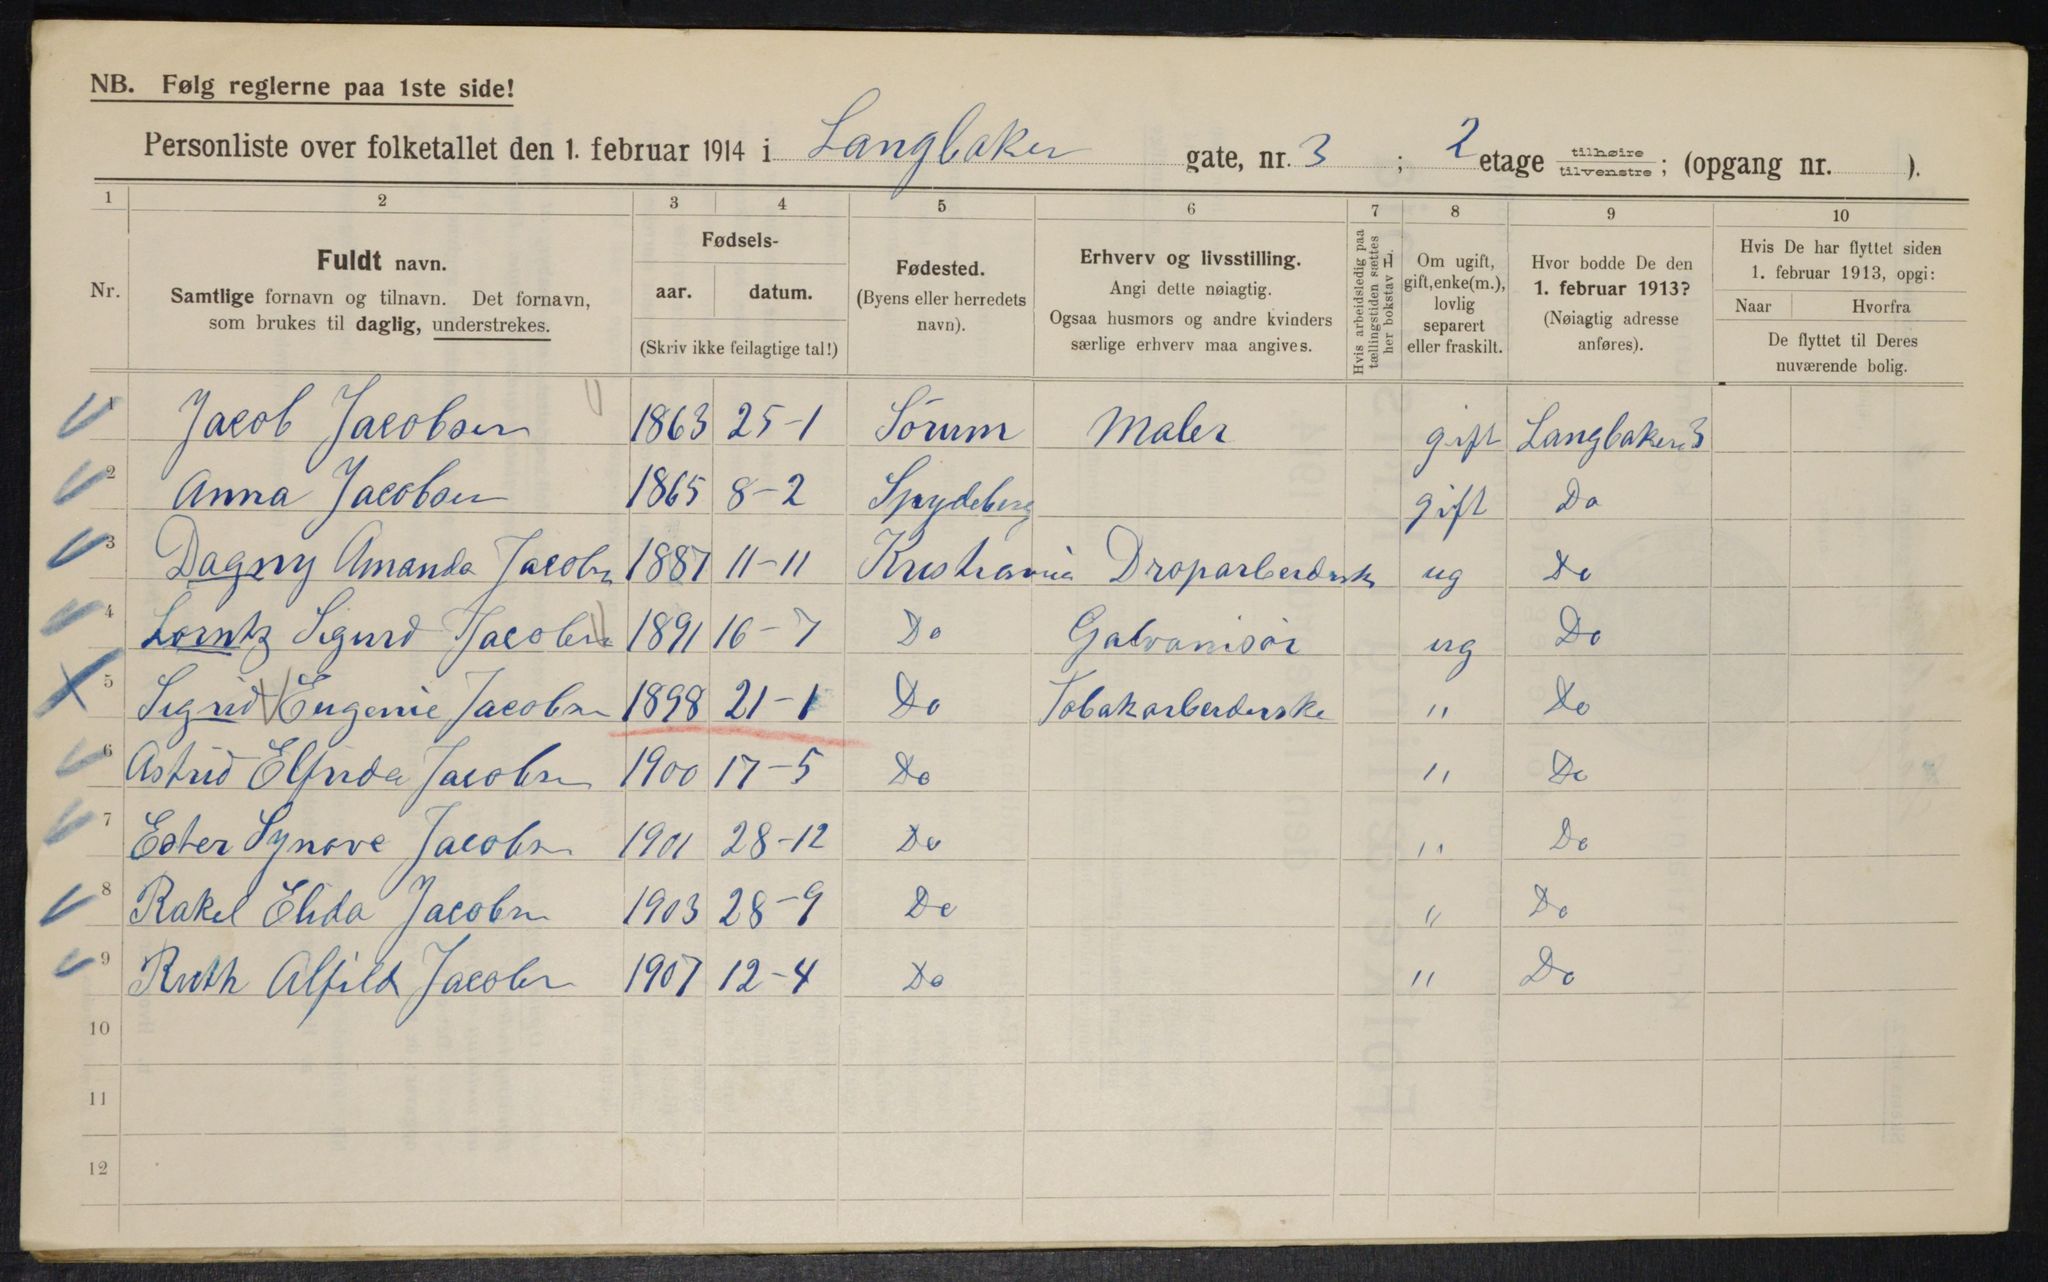 NB. Følg reglerne paa 1ste side!
Personliste over folketallet den 1. februar 1914 i Langbaker gate, nr. 3 ; 2 etage tilhøire/tilvenstre; (opgang nr. ).
1 2 3 4 5 6 7 8 9 10
Nr.
Fuldt navn.
Samtlige fornavn og tilnavn. Det fornavn,
som brukes til daglig, understrekes.
Fødsels-
aar. datum.
(Skriv ikke feilagtige tal!)
Fødested.
(Byens eller herredets
navn).
Erhverv og livsstilling.
Angi dette nøiagtig.
Ogsaa husmors og andre kvinders
særlige erhverv maa angives.
Hvis arbeidsledig paa
tællingstiden sættes
her bokstav L.
Om ugift,
gift, enke(m.),
lovlig
separert
eller fraskilt.
Hvor bodde De den
1. februar 1913?
(Nøiagtig adresse
anføres).
Hvis De har flyttet siden
1. februar 1913, opgi:
Naar Hvorfra
De flyttet til Deres
nuværende bolig.
1 Jacob Jacobsen 1863 25-1 Sórum Maler gift Langbaker 3
2 Anna Jacobsen 1865 8-2 Spydeberg gift Do
3 Dagny Amanda Jacobsn 1887 11-11 Kristiania Droparbeiderske ug Do
4 Lorntz Sigurd Jacobsn 1891 16-7 Do Galvanisør ug Do
5 Sigrid Eugenie Jacobsn 1898 21-1 Do Tobakarbeiderske " Do
6 Astrid Elfrida Jacobsn 1900 17-5 Do " Do
7 Ester Synove Jacobsn 1901 28-12 Do " Do
8 Rakel Elida Jacobsn 1903 28-9 Do " Do
9 Ruth Alfild Jacobsn 1907 12-4 Do " Do
10
11
12